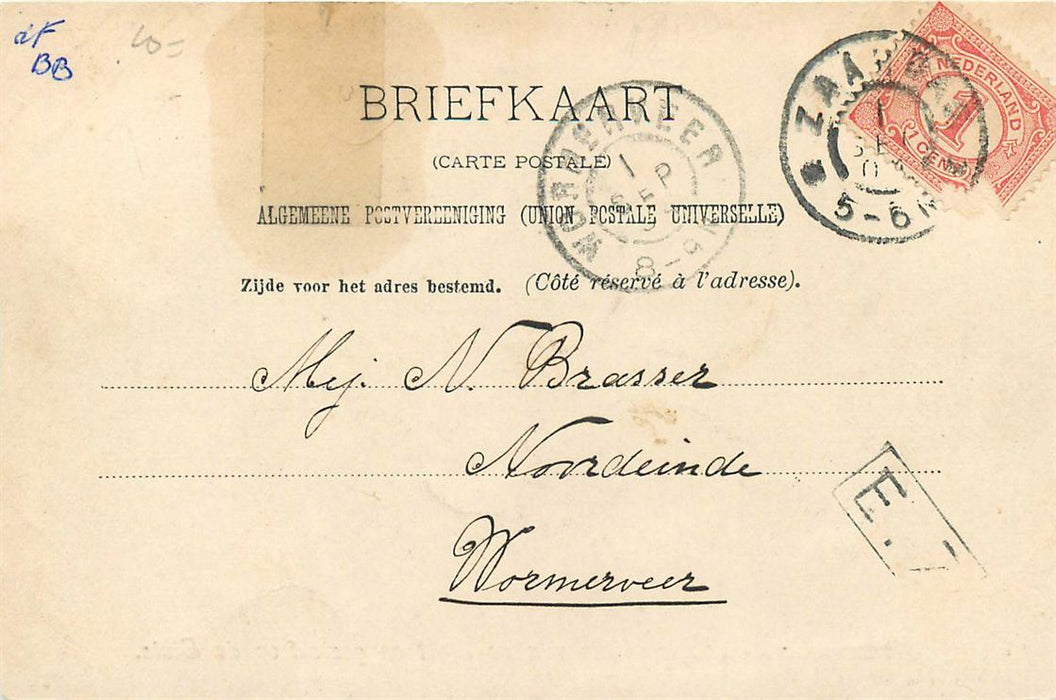 2F
BB
BRIEFKAART
(CARTE POSTALE)
ALGEMEENE POSTVEREENIGING (UNION POSTALE UNIVERSELLE)
Zijde voor het adres bestemd. (Côté réservé à l'adresse).
WORMERVEER
1 SEP
8-
ZAANDAM
1
5-6N
NEDERLAND
1
1 CENT
Mej. N. Brasser
Noordeinde
Wormerveer
E.